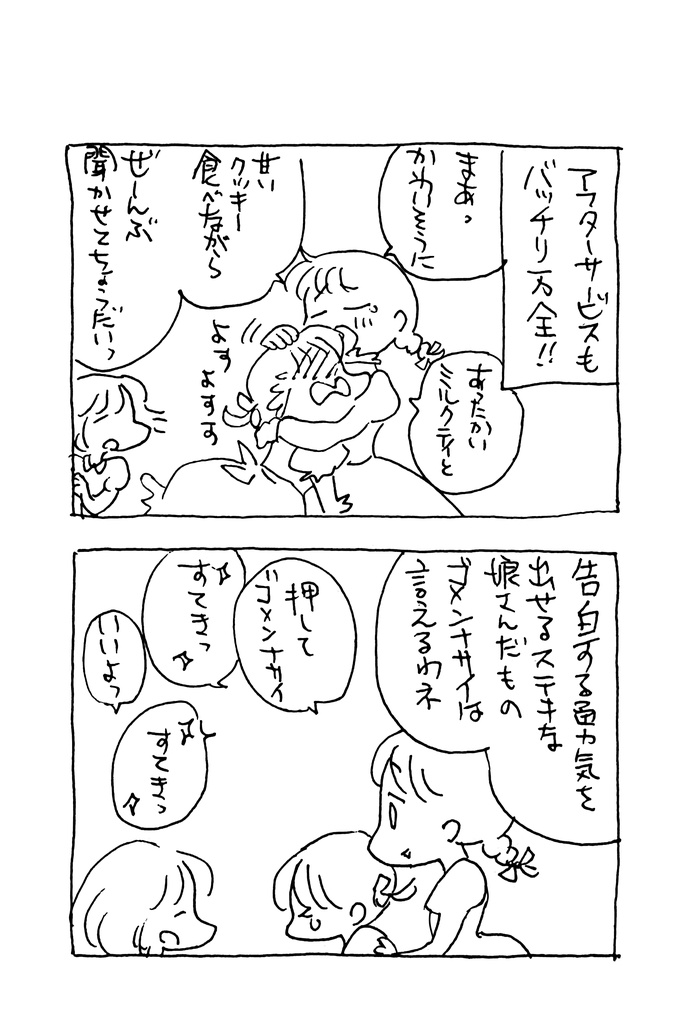 アフターサービスも
バッチリ万全!!
まあっ
かわいそうに
あったかい
ミルクティと
甘い
クッキー
食べながら
ぜーんぶ
聞かせてちょうだいっ
よす よすす
告白する勇気を
出せるステキな
娘さんだもの
ゴメンナサイは
言えるわネ
押して
ゴメンナサイ
すてきっ
いいよっ
すてきっ